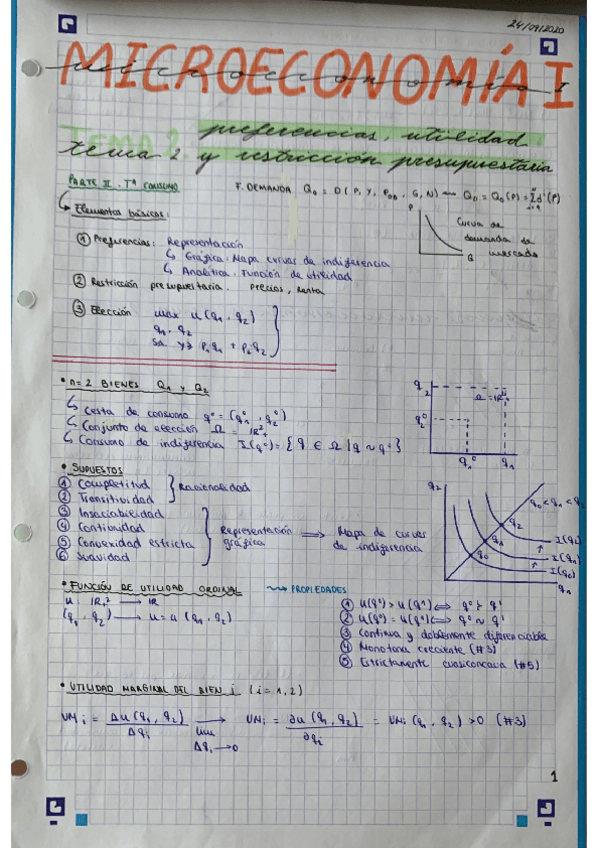 24/09/2020
MICROECONOMÍA I
microeconomía I
TEMA 2.
preferencias, utilidad
tema 2 y restricción presupuestaria
PARTE II. Tª CONSUMO
F. DEMANDA Q_D = D(P, Y, P_OB, G, N) → Q_D = Q_D(P) = Σd^i(P)
Elementos básicos:
P
Q
Curva de
demanda de
mercado
① Preferencias: Representación
↳ Gráfica: Mapa curvas de indiferencia
↳ Analítica: Función de utilidad
② Restricción presupuestaria. Precios, Renta
③ Elección max u(q1, q2)
q1, q2
sa. y ≥ p1q1 + p2q2
• n=2 BIENES Q1 y Q2
↳ Cesta de consumo q⁰ = (q1⁰, q2⁰)
↳ Conjunto de elección Ω = IR²+
↳ Consumo de indiferencia I(q⁰) = {q ∈ Ω | q ~ q⁰}
q2
q2⁰
Ω = IR²+
q1⁰
q1
• SUPUESTOS
① Completitud
② Transitividad
} Racionalidad
③ Insaciabilidad
④ Continuidad
⑤ Convexidad estricta
⑥ Suavidad
Representación gráfica ⟹ Mapa de curvas de indiferencia
q2
q0 < q1 < q2
q2
q1
q0
I(q2)
I(q1)
I(q0)
q1
• FUNCIÓN DE UTILIDAD ORDINAL ⇝ PROPIEDADES
u: IR+² → IR
(q1, q2) → u = u(q1, q2)
① u(q⁰) > u(q¹) ⟺ q⁰ ≻ q¹
② u(q⁰) = u(q¹) ⟺ q⁰ ~ q¹
③ Continua y doblemente diferenciable
④ Monótona creciente (#3)
⑤ Estrictamente cuasiconcava (#5)
• UTILIDAD MARGINAL DEL BIEN i (i = 1,2)
UMi = Δu(q1, q2) / Δqi → lim Δqi → 0 UMi = ∂u(q1, q2) / ∂qi = UMi(q1, q2) > 0 (#3)
1